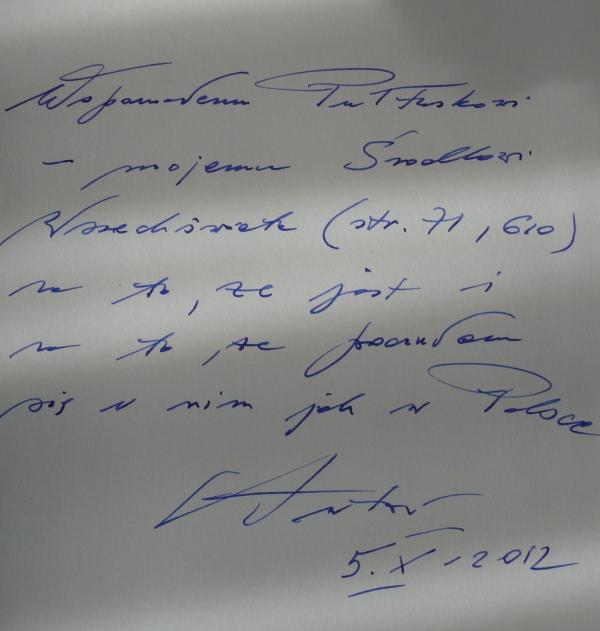 Wspaniałemu Pułtuskowi
– mojemu Środkowi
Wszechświata (str. 71, 610)
za to, że jest i
za to, że poczułem
się w nim jak w Polsce
Autor
5.X.2012